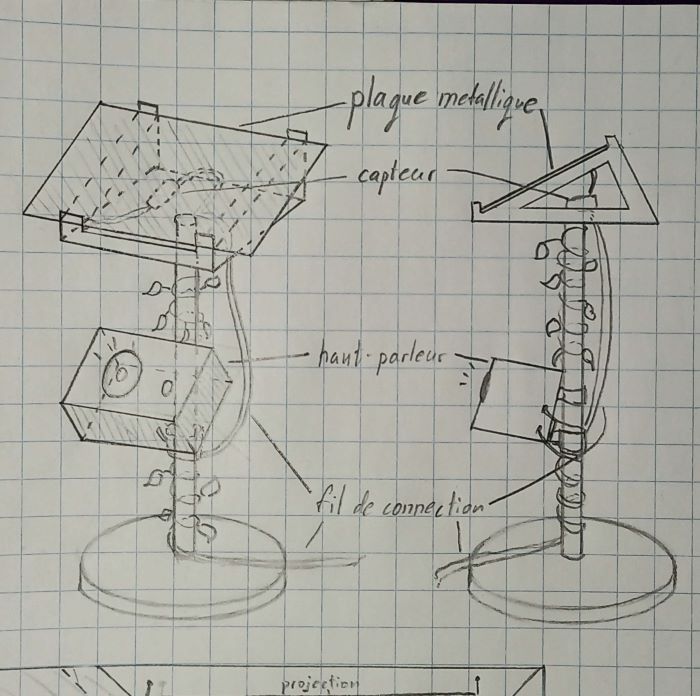 plaque metallique
capteur
haut-parleur
fil de connection
projection